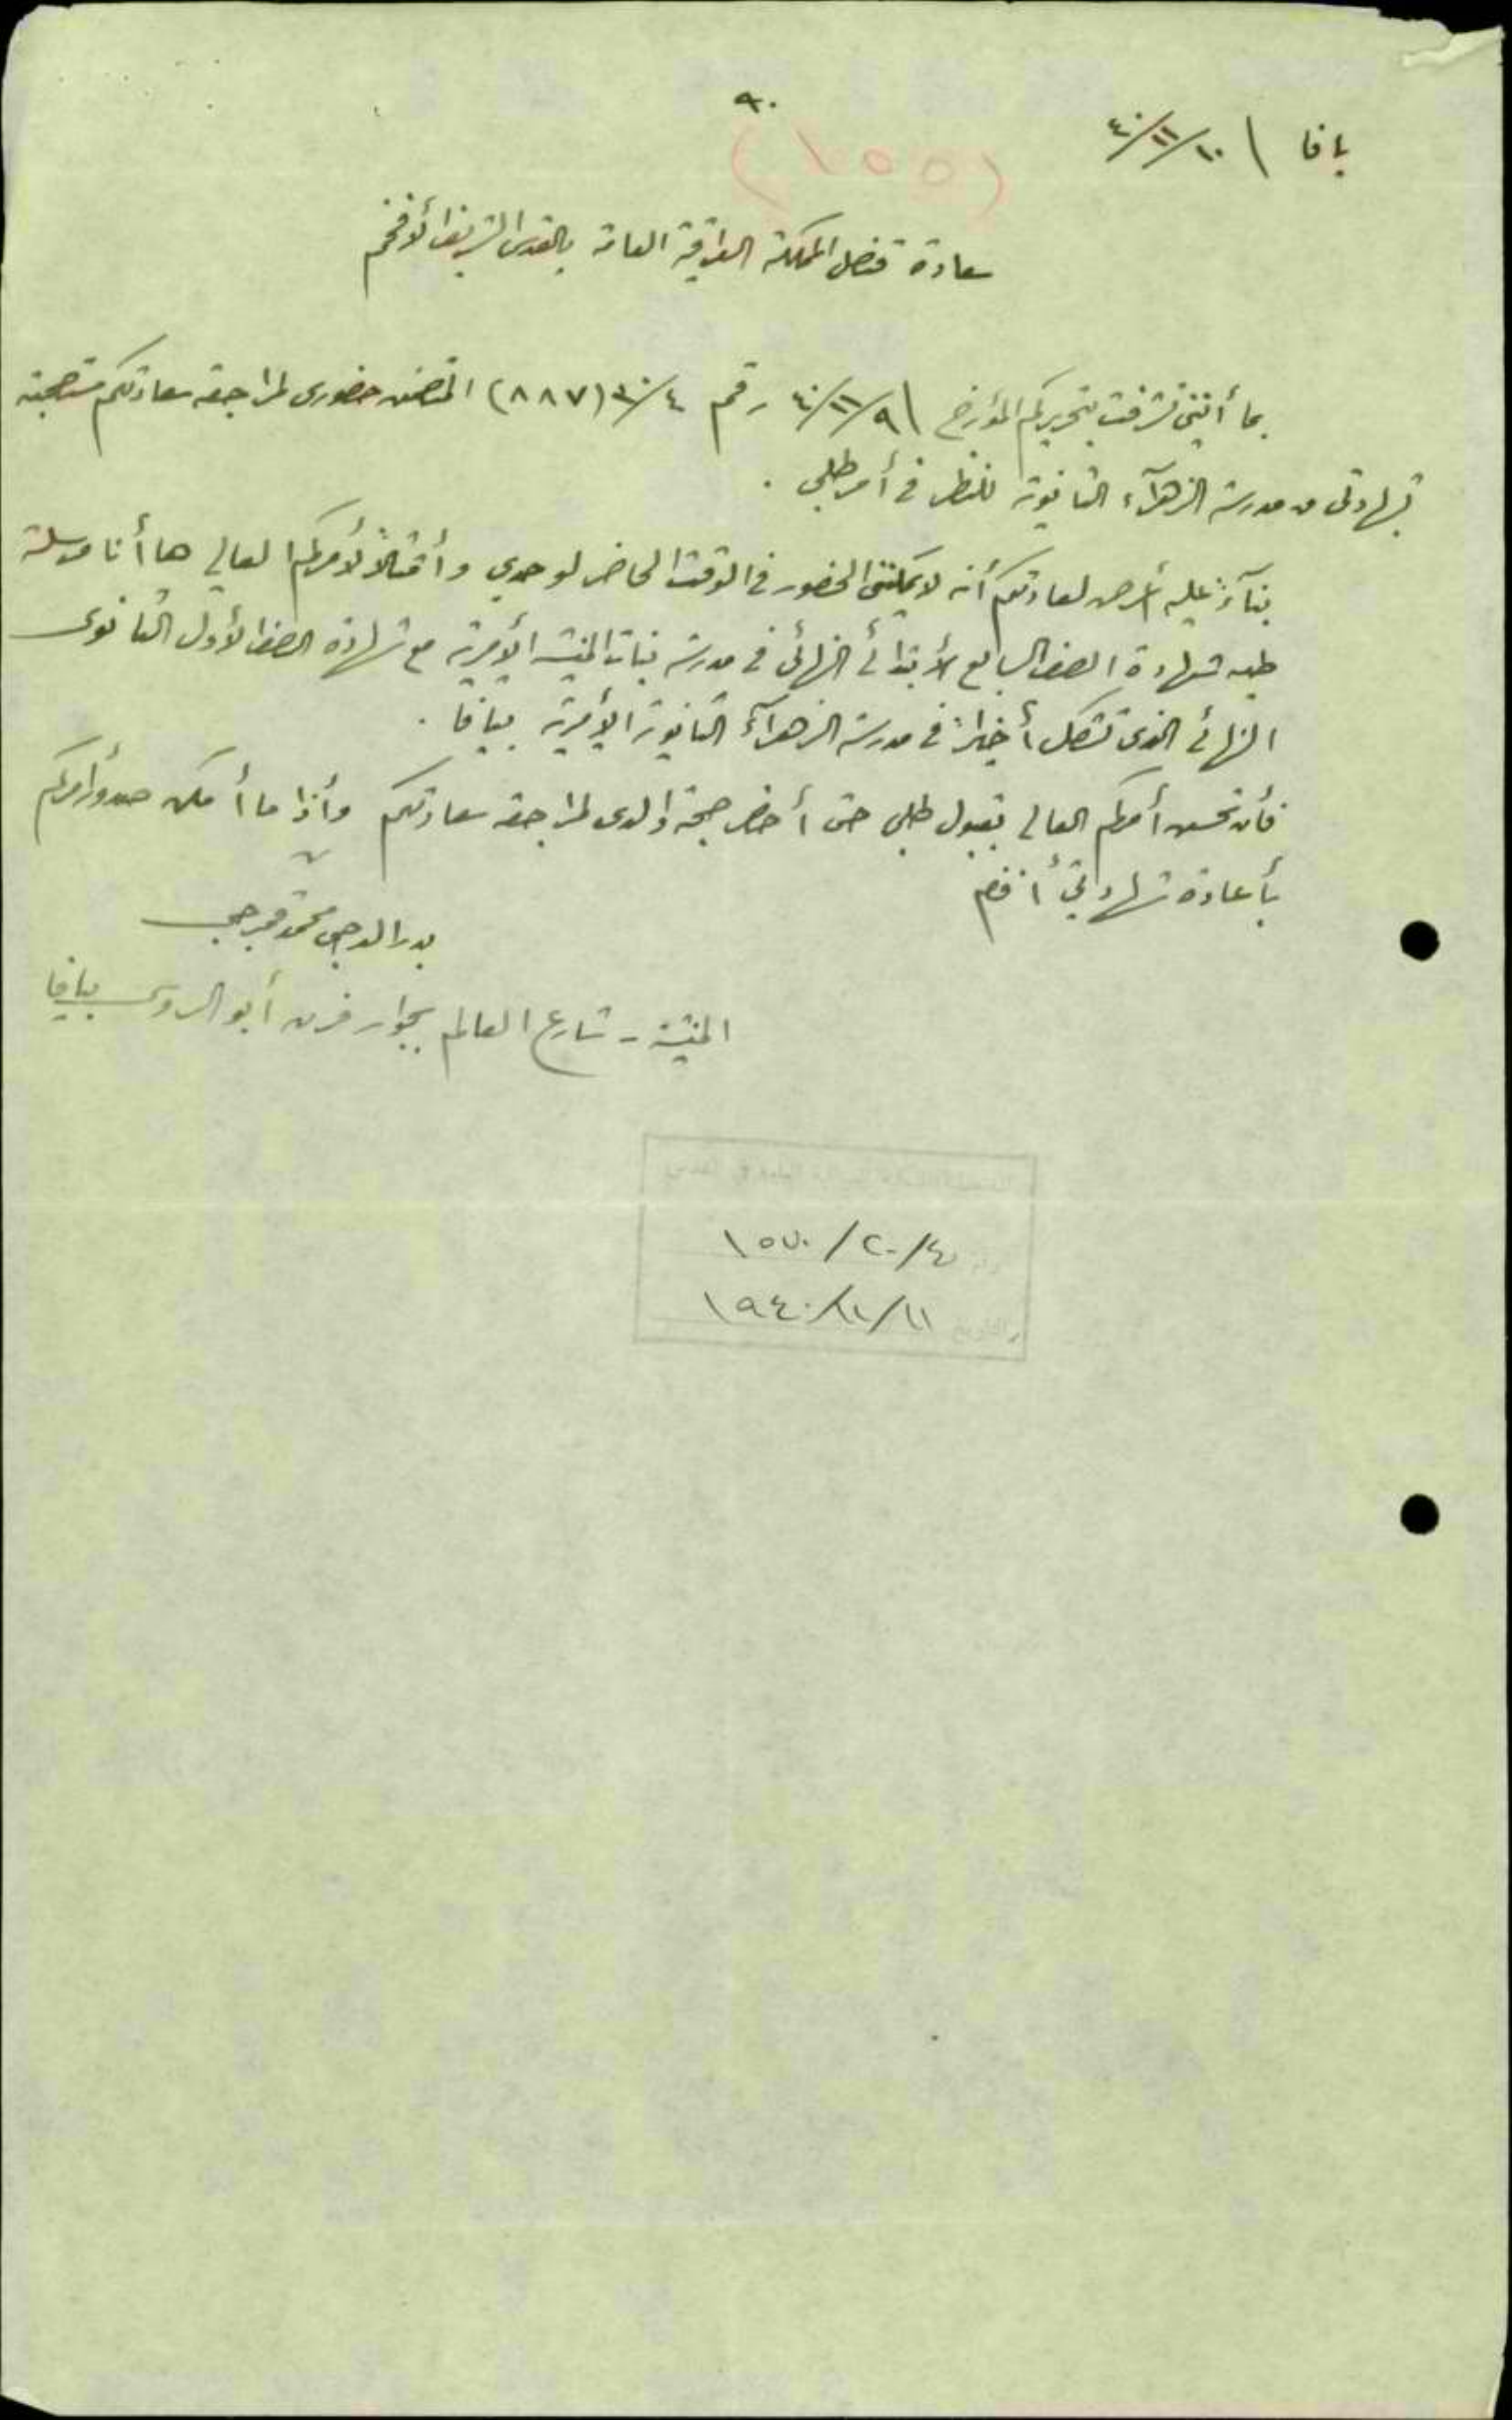 ٩٠
يافا \ ١٠/١١/٤٠
(١٥٥)
سعادة قنصل المملكة العراقية العامة بالقدس الشريف الأفخم
بما أنني تشرفت بتحريركم المؤرخ \ ٩/١١/٤٠ رقم ٤/٣٠ (٨٨٧) المتضمن حضوري لمراجعة سعادتكم مستصحبة
شهادتي من مدرسة الزهرآء الثانوية للنظر في أمر طلبي .
بنآءً عليه أعرض لسعادتكم أنه لا يمكنني الحضور في الوقت الحاضر لوحدي وأمتثالاً لأمركم العالي ها أنا مرسلة
طيه شهادة الصف السابع الأبتدائي النهائي في مدرسة بنات المنشية الأميرية مع شهادة الصف الأول الثانوي
النهائي الذي تشكل أخيراً في مدرسة الزهرآء الثانوية الأميرية بيافا .
فأن تحسن أمركم العالي بقبول طلبي حتى أحضر صحبة والدي لمراجعة سعادتكم وأذا ما أمكن صدور أمركم
بأعادة شهاداتي أفندم
بدر الدجى محمد
المنشية - شارع العالم بجوار فرن أبو الروس بيافا
٤/٢٠/١٥٧٠
والتاريخ ١١/١١/١٩٤٠